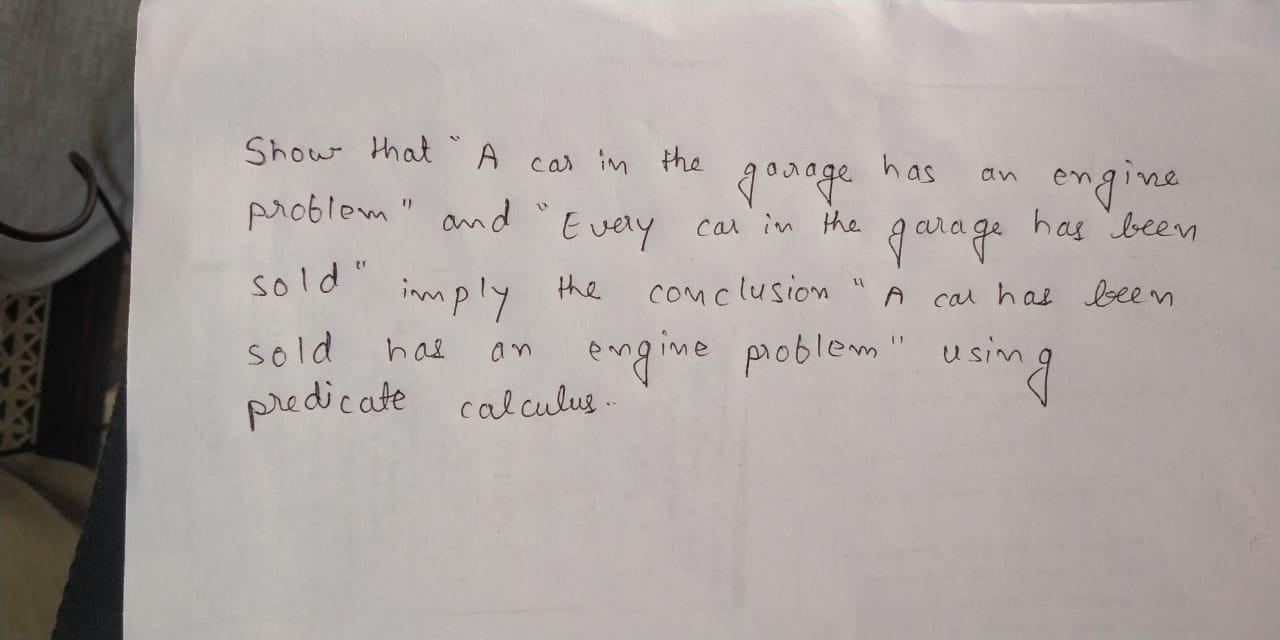 Show that "A car in the garage has an engine
problem" and "Every car in the garage has been
sold" imply the conclusion "A car has been
sold has an engine problem" using
predicate calculus..